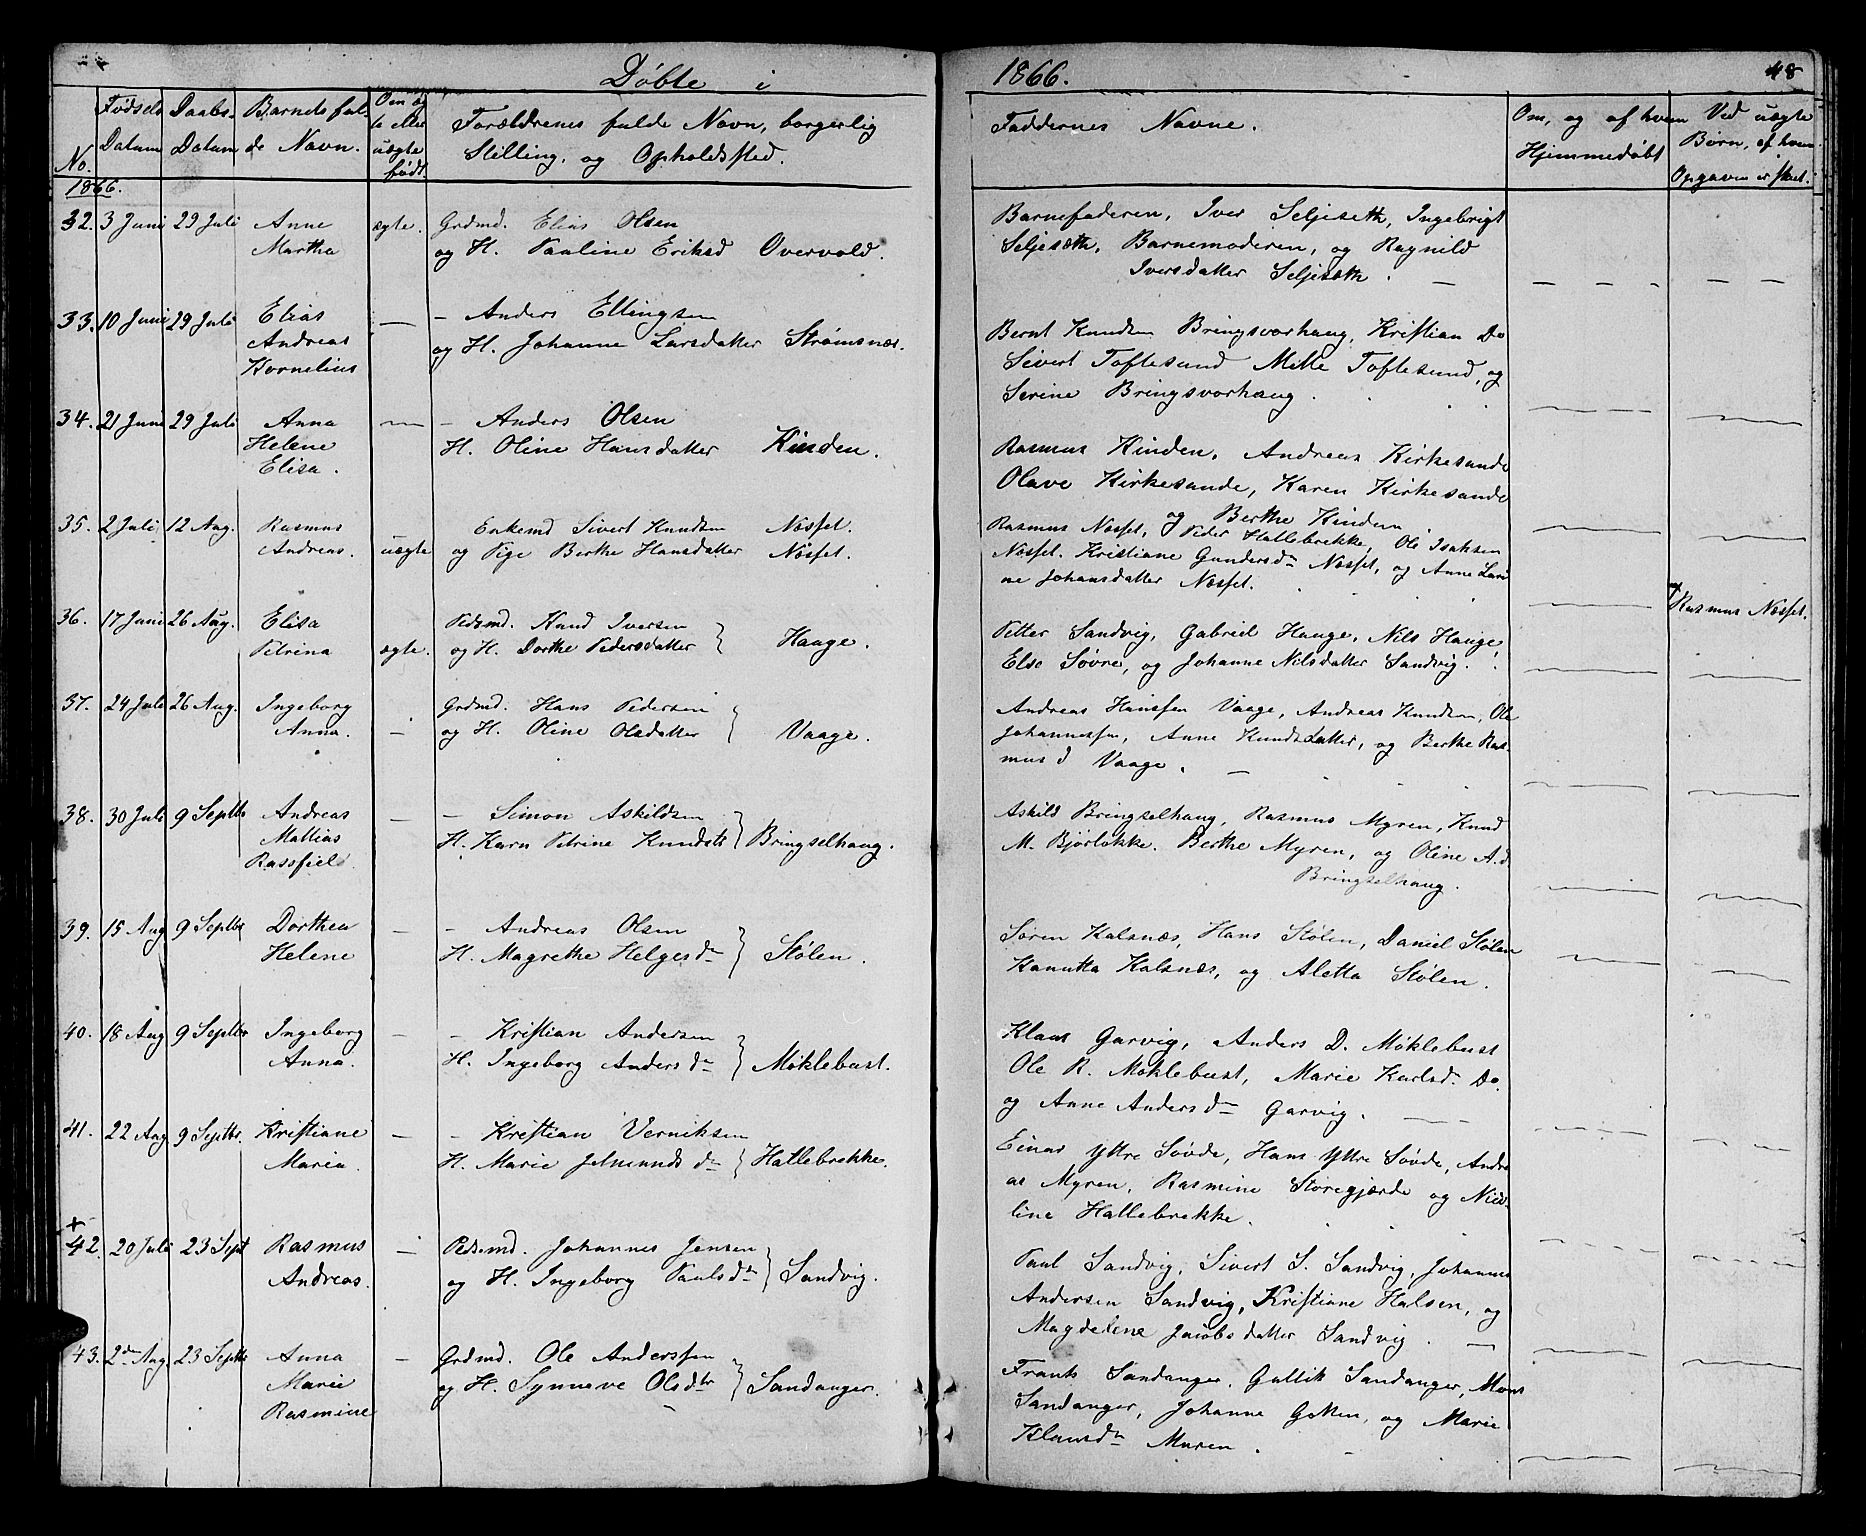 Døbte i
1866.
48
No.
Fødsels Datum
Daabs- Datum
Barnets ful- de Navn.
Om æg te eller uægte født.
Forældrenes fulde Navn, borgerlig
Stilling, og Opholdsted.
Faddernes Navne.
Om, og af hvem
Hjemmedøbt
Ved uægte
Børn, af hvem
Opgaven er skeet.
1866.
32. 3 Juni 29 Juli Anne ægte. Grdmd. Elias Olsen
Martha og H. Pauline Eriksd Overvold.
Barnefaderen, Iver Seljeseth, Ingebrigt
Seljesæth, Barnemoderen, og Ragnild
Iversdatter Seljesæth.
33. 10 Juni 29 Juli Elias — - Anders Ellingsen
Andreas og H. Johanne Larsdatter Strømsnæs.
Kornelius
Bernt Knudsen Bringsvorhaug, Kristian Do
Sivert Toftesund Mette Toftesund, og
Serine Bringsvorhaug.
34. 21 Juni 29 Juli Anna — - Anders Olsen
Helene H. Oline Hansdatter Kinden.
Elisa.
Rasmus Kinden, Andreas Kirkesande
Olave Kirkesande, Karen Kirkesande
og Berthe Kinden.
35. 2 Juli 12 Aug. Rasmus Enkemd Sivert Knudsen Nosset.
Andreas. uægte og Pige Berthe Hansdatter Nosset.
Rasmus Nosset, Peder Hallebrekke, Ole Isaksen
Nosset. Kristiane Gundersdr Nosset, og Anne Lari
ne Johansdatter Nosset.
Rasmus Nosset.
36. 17 Juni 26 Aug. Elisa Pedsmd. Knud Iversen
Petrina ægte. og H. Dorthe Pedersdatter Haage.
Petter Sandvig, Gabriel Hauge, Nils Hauge,
Else Søvre, og Johanne Nilsdatter Sandvig.
37. 24 Juli 26 Aug. Ingeborg Grdmd. Hans Pedersen
Anna. — og H. Oline Olsdatter Vaage.
Andreas Hanssen Vaage, Andreas Knudsen, Ole
Johannessen, Anne Knudsdatter, og Berthe Ras
mus d Vaage.
38. 30 Juli 9 Septbr Andreas — - Simon Askildsen
Mathias H. Karn Petrine Knudsdr Bringselhaug.
Rassfield
Askild Bringselhaug, Rasmus Myren, Knud
M. Bjørløkke. Berthe Myren, og Oline A.d
Bringselhaug.
39. 15 Aug 9 Septbr Dorthea — - Andreas Olsen
Helene H. Magrethe Helgesdr Stølen.
Søren Kalsnæs, Hans Stølen, Daniel Stølen
Kanutta Kalsnæs, og Aletta Stølen.
40. 18 Aug 9 Septbr Ingeborg — - Kristian Andersen
Anna. H. Ingeborg Andersdr Møklebust.
Klaus Garvig, Anders D. Møklebust
Ole R. Møklebust, Marie Karlsd. Do.
og Anne Andersdr Garvig.
41. 22 Aug 9 Septbr. Kristiane — - Kristian Verniksen
Maria. H. Marie Jetmundsdr Hallebrekke.
Einar Yttre Søvde, Hans Yttre Søvde, Andre
as Myren, Rasmine Storegjærde og Nico-
line Hallebrekke.
+
42. 20 Juli 23 Sept Rasmus — Pedsmd. Johannes Jensen
Andreas. og H. Ingeborg Paulsdr Sandvig.
Paul Sandvig, Sivert S. Sandvig, Johannes
Andersen Sandvig, Kristiane Halsen, og
Magdelene Jacobsdatter Sandvig.
43. 2den Aug 23 Septbr Anna — Grdmd. Ole Anderssen
Marie og H. Synneve Olsdtr Sandanger.
Rasmine
Frants Sandanger, Gullik Sandanger, Mons
Sandanger, Johanne Gotten, og Marie
Klausdr Muren.